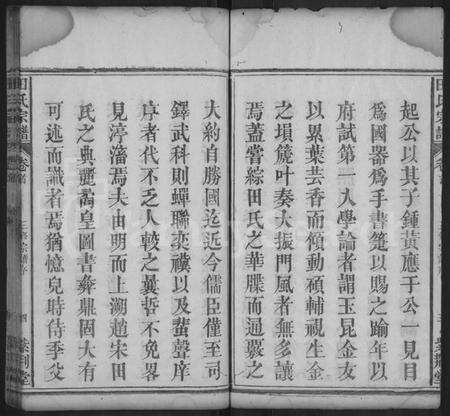 起公以其子鍾黃應于公一見目
為國器爲手書箑以賜之踰年以
府試第一入學論者謂玉昆金友
以累葉芸香而傾動碩輔視生金
之塤箎叶奏大振門風者無多讓
焉蓋嘗綜田氏之華牒而通覈之
大約自勝國迄近今儒臣僅至司
鐸武科則蟬聯奕禩以及蜚聲庠
序者代不乏人較之曩哲不免畧
見渟瀋焉夫由明而上溯趙宋田
氏之典麗矞皇圖書彝鼎固大有
可述而識者焉猶憶兒時侍季父
田氏宗譜 卷首
四 紫荆堂